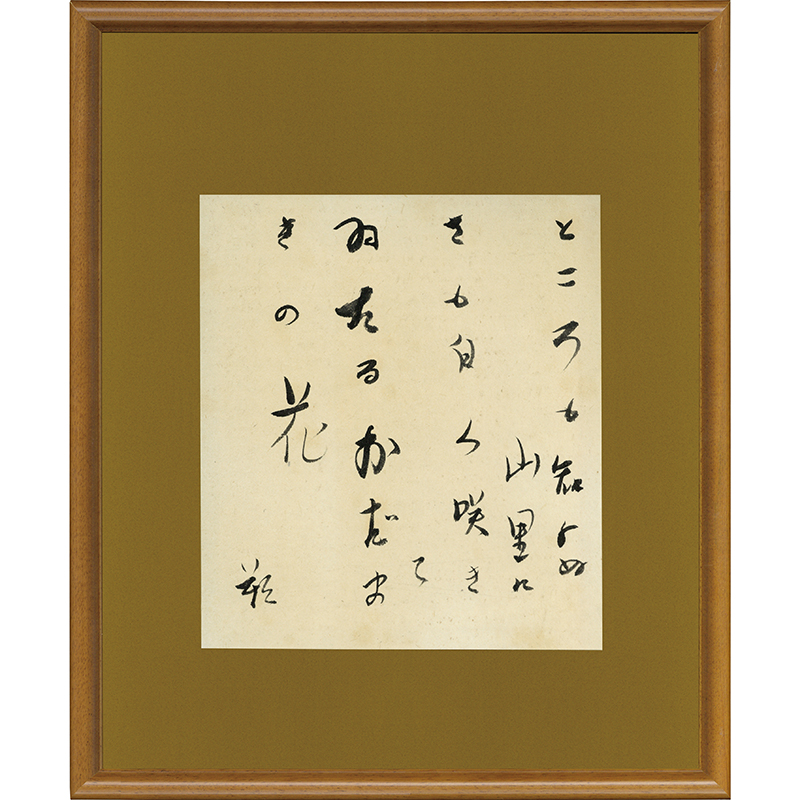 ところも知らぬ
山里に
さも白く咲き
て
ゐたるおだま
きの花
朔